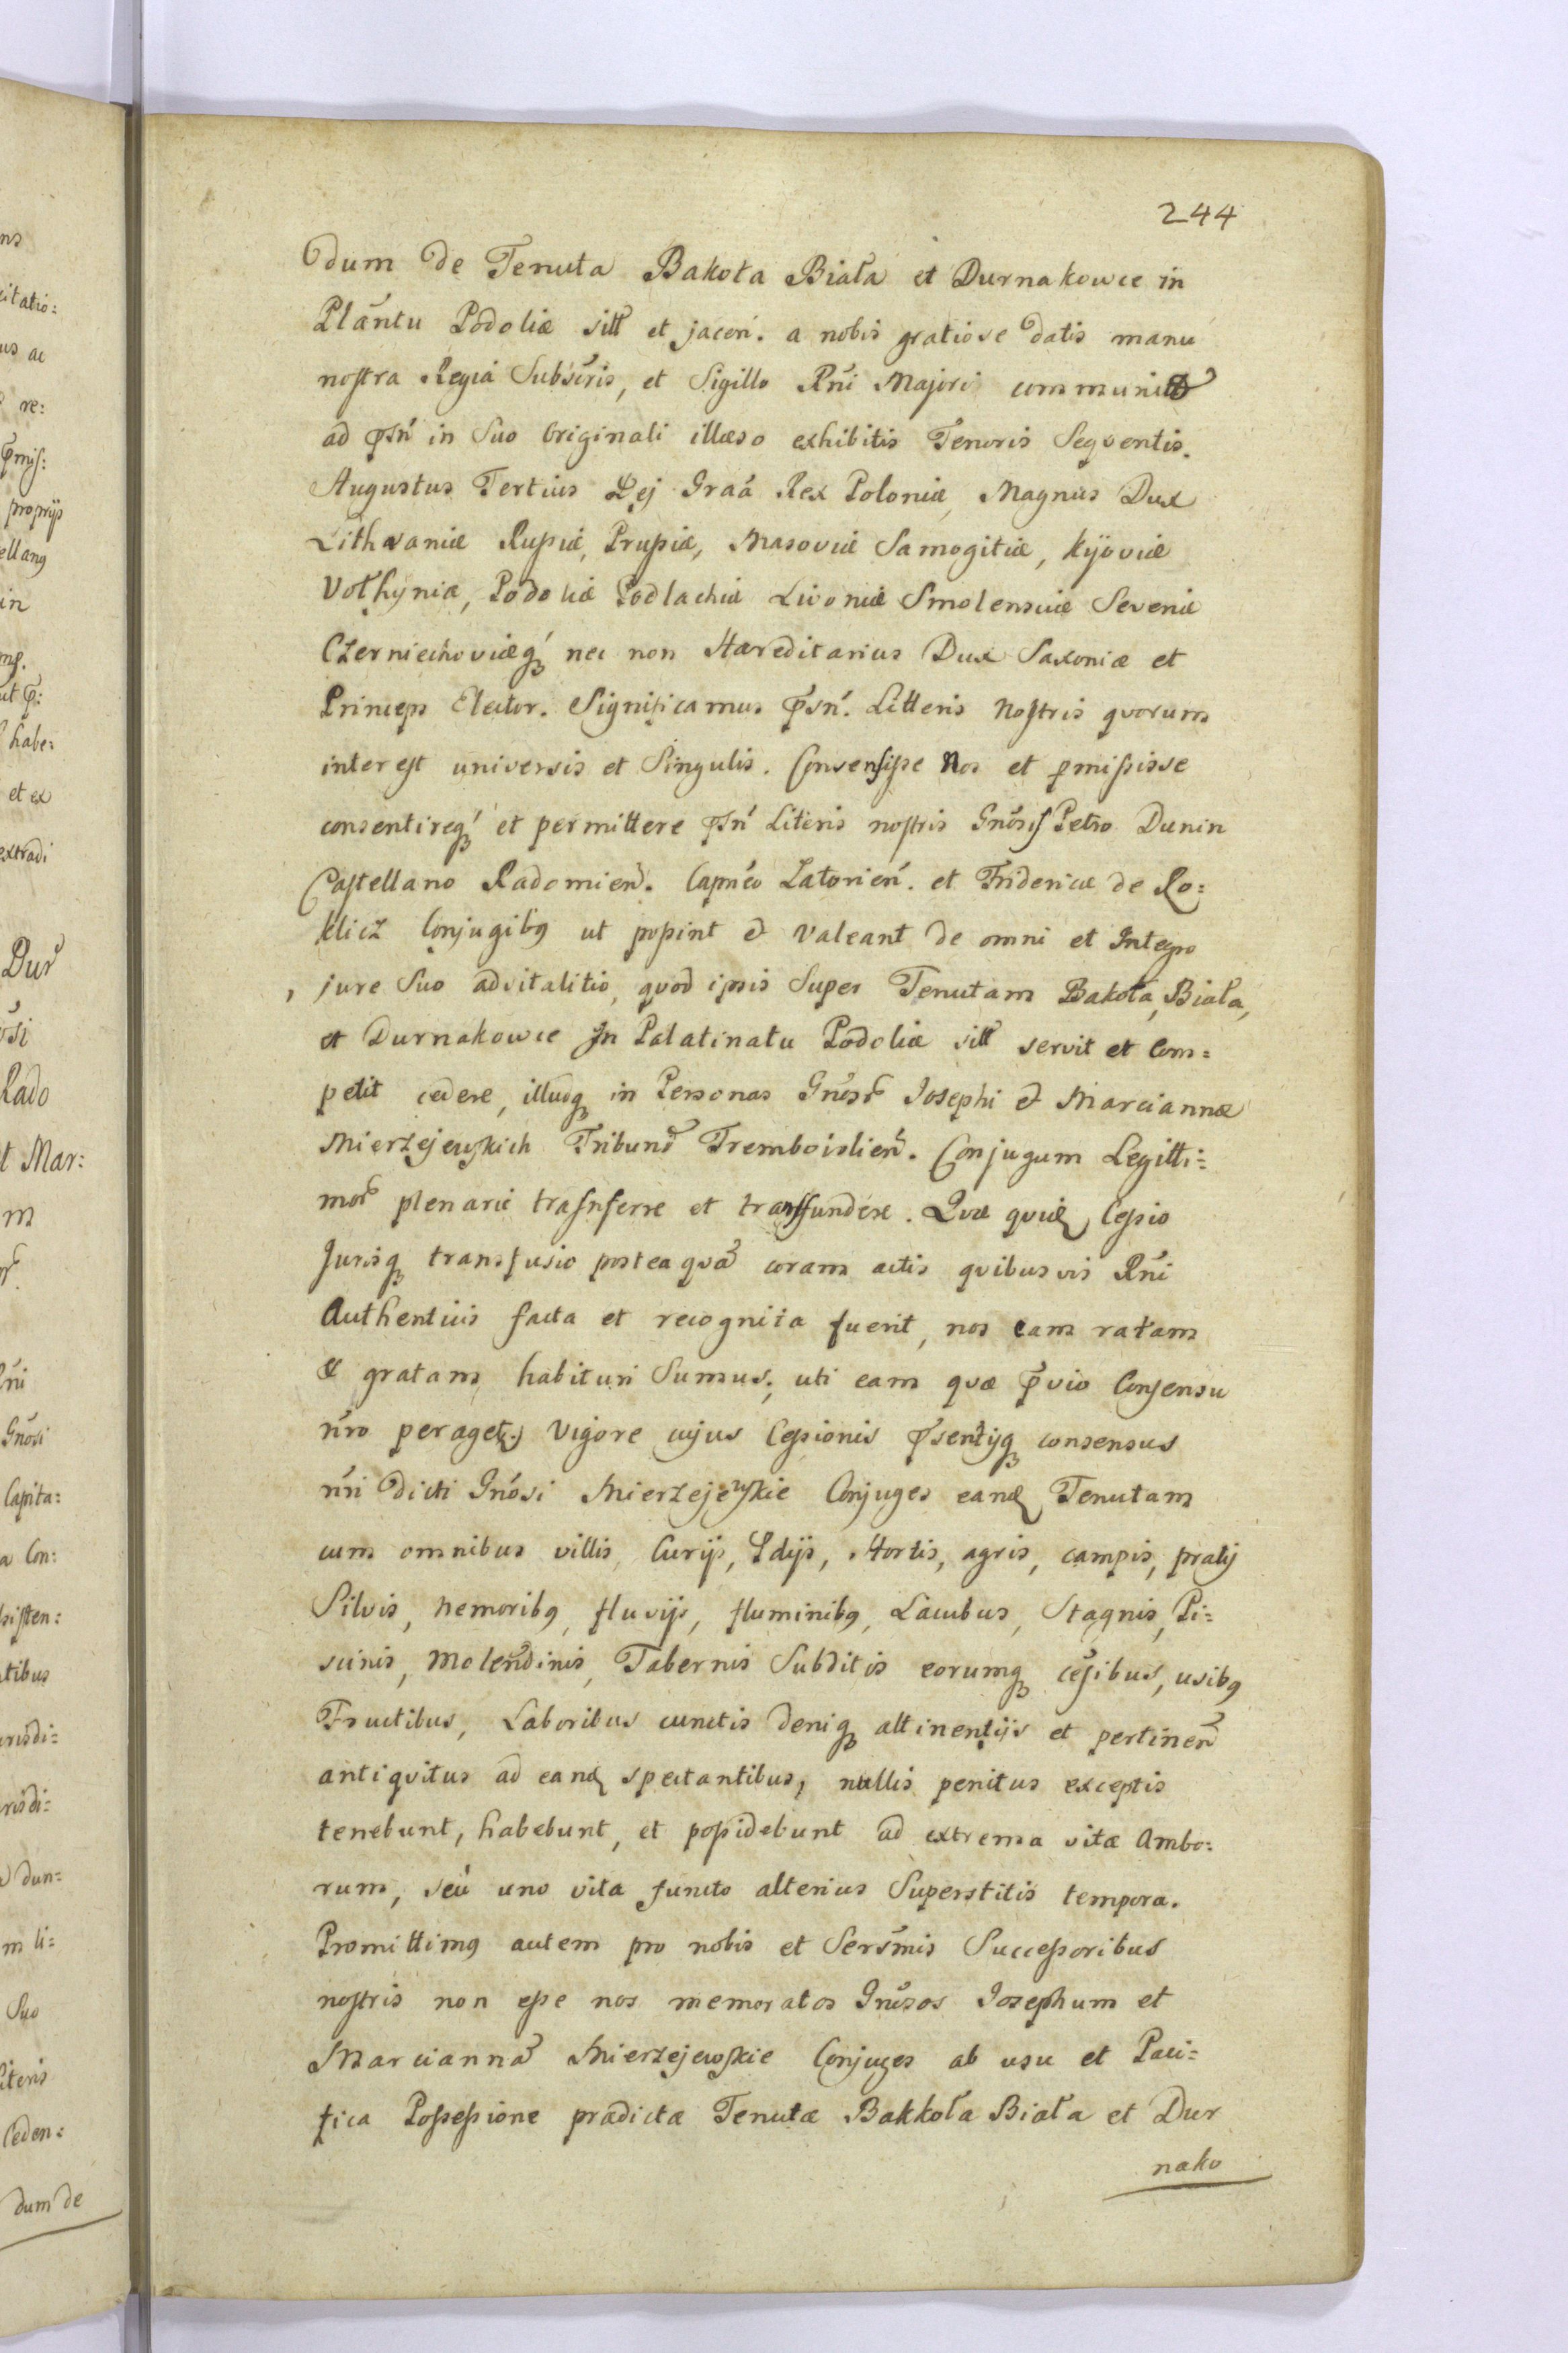 244
dum de Tenuta Bakota Biała et Durnakowce in
Plãntu Podoliæ sitt et jacen. a nobis gratiose datis manu
nostra Regia Subscris, et Sigillo Rñi Majori communitt
ad p̃sñ in Suo Originali illæso exhibitis Tenoris Seqventis.
Augustus Tertius Dej Graa Rex Poloniæ, Magnus Dux
Lithvaniæ Russiæ, Prussiæ, Masoviæ Samogitiæ, Kijoviæ
Vołhyniæ, Podoliæ Podlachiæ Livoniæ Smolensciæ Seveniæ
Czerniechoviæq́ nec non Hæreditarius Dux Saxoniæ et
Princeps Elector. Significamus p̃sñ. Litteris Nostris qvorum
interest universis et Singulis. Consensisse Nos et p̱misisse
consentireq́ et permittere p̃sñ Literis nostris Gnõsis Petro Dunin
Castellano Radomien. Capnẽo Zatorien. et Fridericæ de Ro=
klicz Conjugibꝯ ut possint et valeant de omni et Integro
jure Suo advitalitio, qvod ipsis Super Tenutam Bakota, Biała,
et Durnakowce In Palatinatu Podoliæ sitt servit et Com=
petit cedere, illudq́ in Personas Gnosr̃ Josephi et Marciannæ
Mierzejewskich Tribunõ Trembovlien. Conjugum Legitti=
mor̃ plenarie trasnferre et transfundere. Qvæ qvid Cessio
Jurisq́ transfusio posteaqvã coram actis qvibusvis Rñi
Authenticis facta et recognita fuerit, nos eam ratam
et gratam habituri Sumus, uti eam qvæ p̃vio Consensu
nr̃o peraget. Vigore cujus Cessionis p̃sentisq́ consensus
nr̃i dicti Gnõsi Mierzejewskie Conjuges eand Tenutam
cum omnibus villis, Curijs, Ædijs, Hortis, agris, campis, pratis
Silvis, nemoribꝯ, fluvijs, fluminibꝯ, Lacubus, Stagnis, Pi=
scinis, Molendinis, Tabernis Subditis eorumq́ censibus, usibꝯ
Fructibus, Laboribus cunctis deniq́ attinentijs et pertinen
antiqvitus ad eand spectantibus, nullis penitus exceptis
tenebunt, habebunt, et possidebunt ad extrema vitæ Ambo=
rum, seu uno vita functo alterius Superstitis tempora.
Promittimꝯ autem pro nobis et Sersm̃is Successoribus
nostris non esse nos memoratos Gnõsos Josephum et
Marciannã Mierzejewskie Conjuges ab usu et Paci=
fica Possessione prædictæ Tenutæ Bakkota Biała et Dur
nako